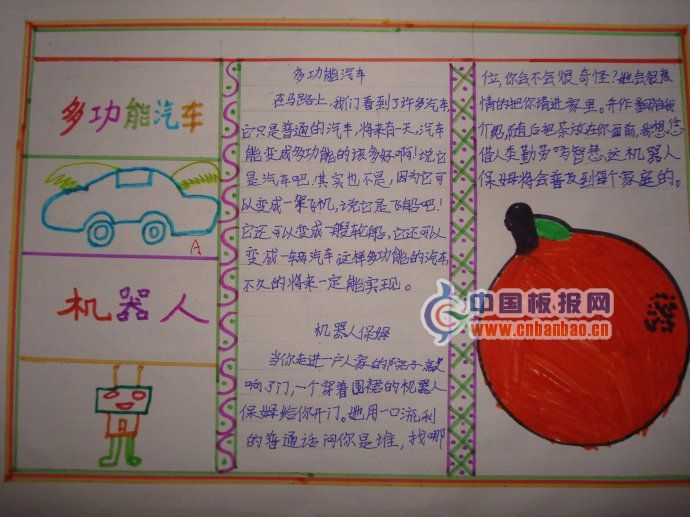 多功能汽车
A
机器人
多功能汽车
在马路上，我们看到了许多汽车
它只是普通的汽车，将来有一天，汽车
能变成多功能的该多好啊！说它
是汽车吧，其实也不是，因为它可
以变成一架飞机，说它是飞船吧！
它还可以变成一艘轮船，它还可以
变成一辆汽车这样多功能的汽车
不久的将来一定能实现。
机器人保姆
当你走进一户人家的院子
响了门，一个穿着围裙的机器人
保姆给你开门。她用一口流利
的普通话问你是谁，找哪
位，你会不会很奇怪？她会很热
情的把你请进家里。并作自我
介绍，随后把茶放在你面前，我想您
借人类勤劳与智慧，这机器人
保姆将会普及到每个家庭的。
中国板报网
www.cnbanbao.cn